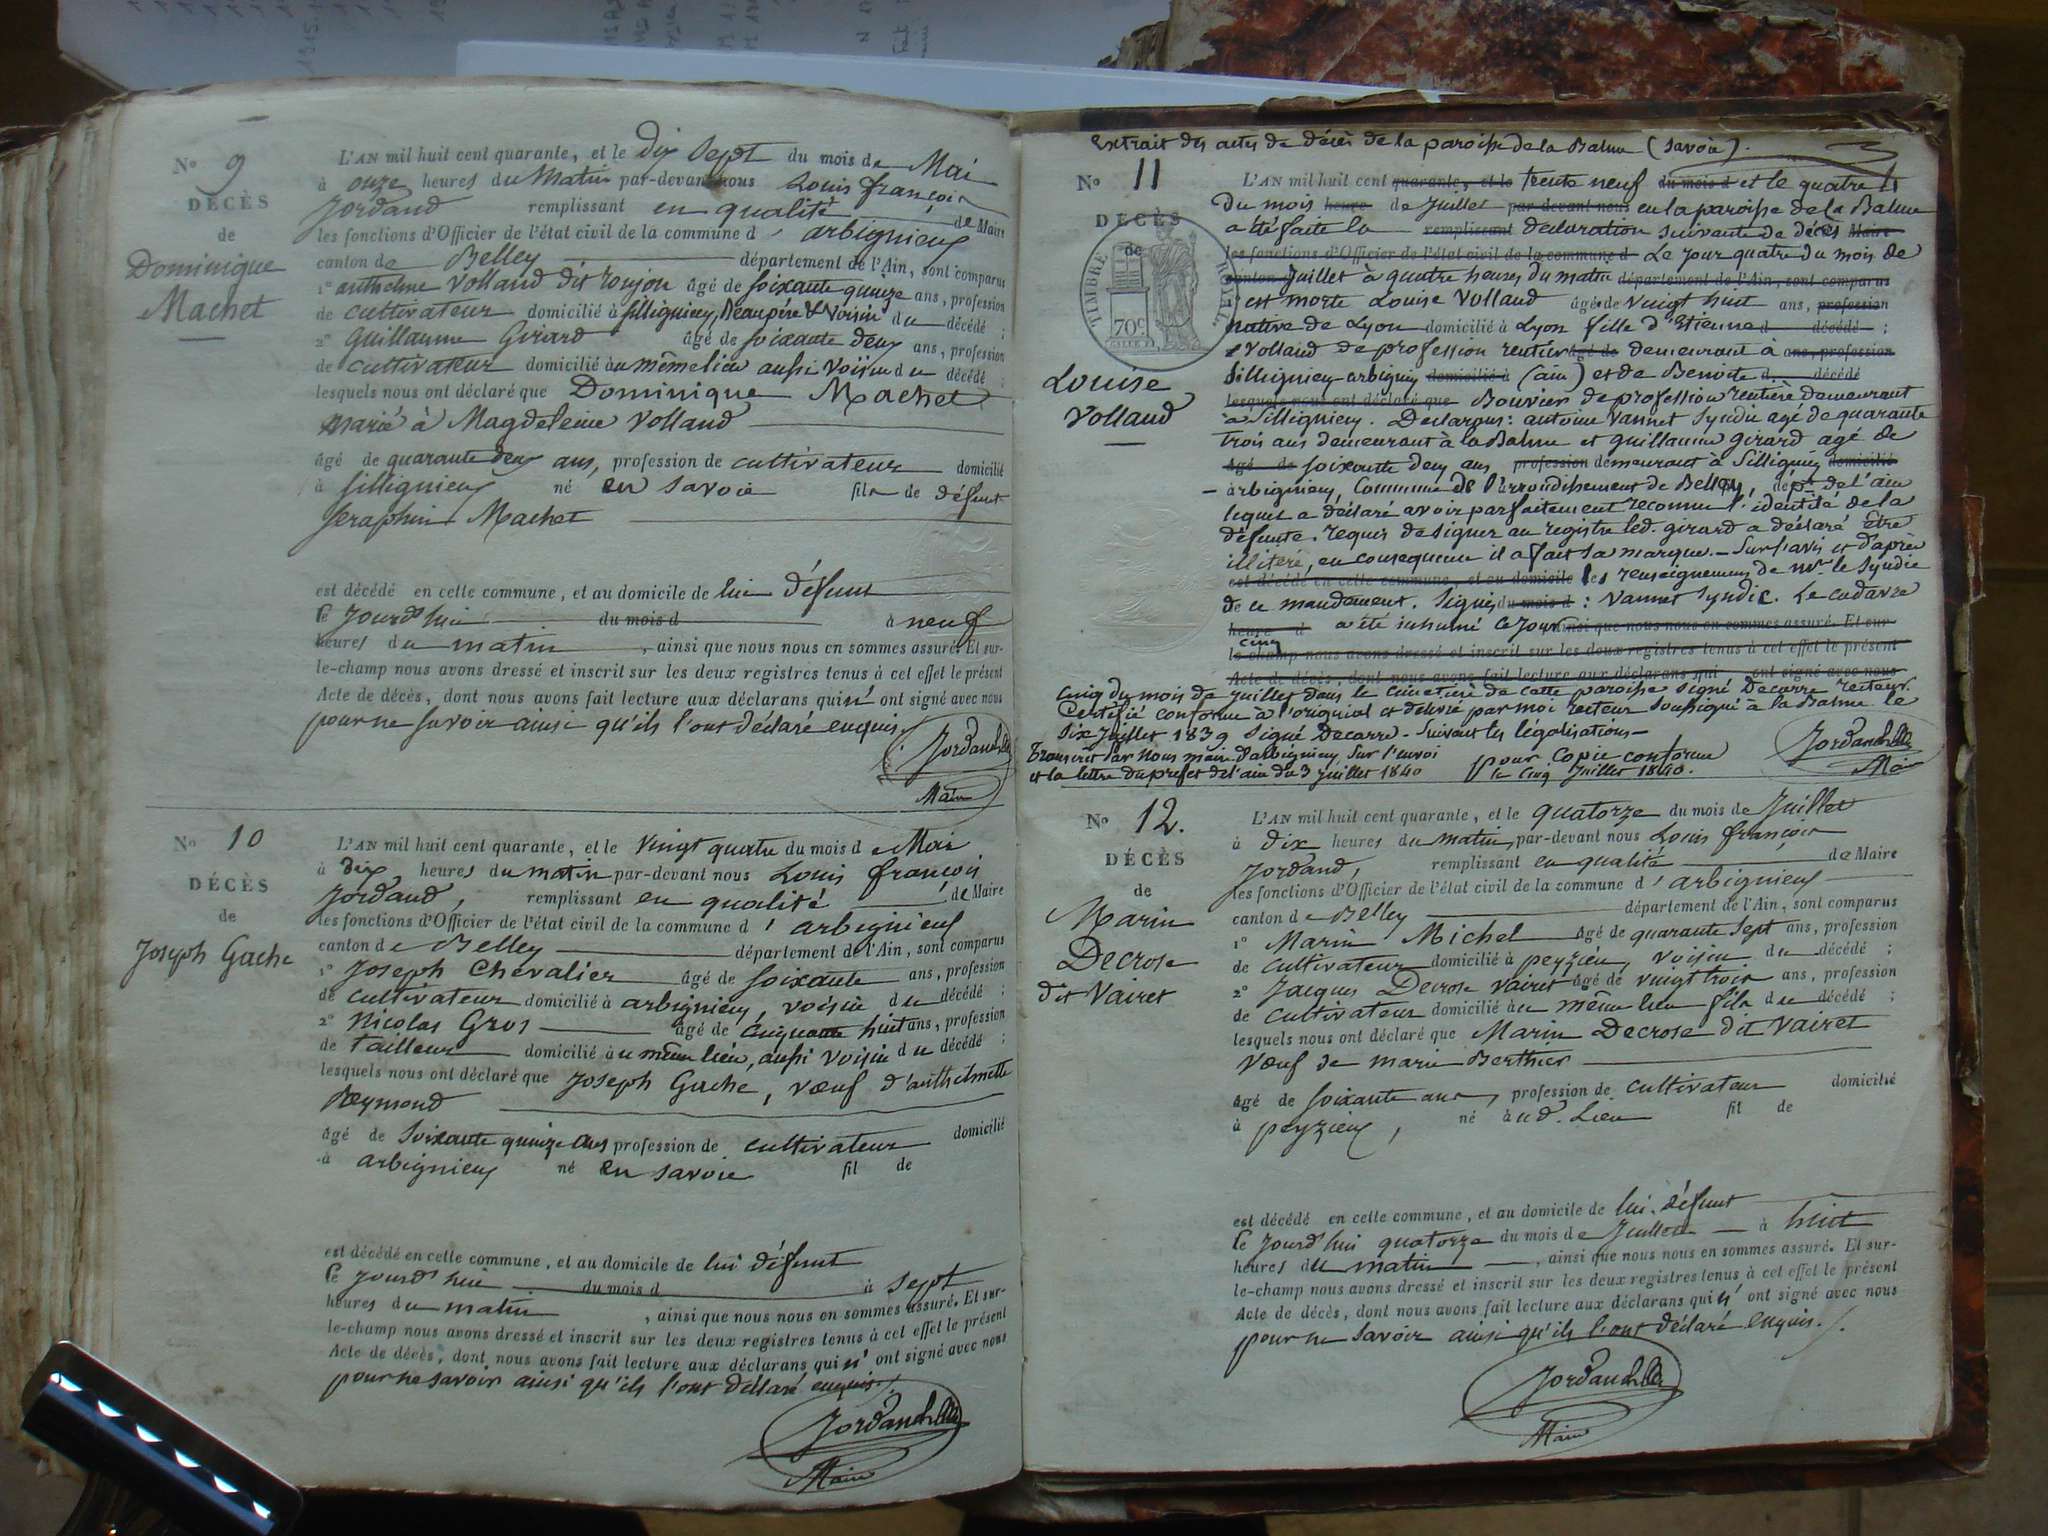 No 9
DÉCÈS
de
Dominique
Machet
L'AN mil huit cent quarante, et le dix sept du mois de Mai
à onze heures du Matin par-devant nous Louis françois
Jordand remplissant en qualité de Maire
les fonctions d'Officier de l'état civil de la commune d'arbignieux
canton de Belley département de l'Ain, sont comparus
1° anthelme Volland dit roujon âgé de soixante quinze ans, profession
de cultivateur domicilié à sillignieux, Beaupére & Voisin du décédé ;
2° Guillaume Girard âgé de soixante deux ans, profession
de cultivateur domicilié au même lieu aussi Voisin du décédé ;
lesquels nous ont déclaré que Dominique Machet
marié à Magdeleine Volland
âgé de quarante deux ans, profession de cultivateur domicilié
à sillignieux né en savoie fils de défunt
seraphin Machet
est décédé en cette commune, et au domicile de lui défunt
le jourd'hui du mois d à neuf
heures du matin, ainsi que nous nous en sommes assuré. Et sur-
le-champ nous avons dressé et inscrit sur les deux registres tenus à cet effet le présent
Acte de décès, dont nous avons fait lecture aux déclarans qui n' ont signé avec nous
pour ne savoir ainsi qu'ils l'ont déclaré enquis.
Jordand
Maire
No 10
DÉCÈS
de
Joseph Gache
L'AN mil huit cent quarante, et le vingt quatre du mois de Mai
à dix heures du matin par-devant nous Louis françois
Jordand, remplissant en qualité de Maire
les fonctions d'Officier de l'état civil de la commune d'arbignieux
canton de Belley département de l'Ain, sont comparus
1° Joseph Chevalier âgé de soixante ans, profession
de cultivateur domicilié à arbignieux, voisin du décédé ;
2° Nicolas Gros âgé de cinquante huit ans, profession
de tailleur domicilié au même lieu, aussi voisin du décédé ;
lesquels nous ont déclaré que Joseph Gache, vœuf d'anthelmette
Reymond
âgé de soixante quinze ans profession de cultivateur domicilié
à arbignieux né en savoie fil de
est décédé en cette commune, et au domicile de lui défunt
le jourd'hui du mois d à sept
heures du matin, ainsi que nous nous en sommes assuré. Et sur-
le-champ nous avons dressé et inscrit sur les deux registres tenus à cet effet le présent
Acte de décès, dont nous avons fait lecture aux déclarans qui n' ont signé avec nous
pour ne savoir ainsi qu'ils l'ont déclaré enquis.
Jordand
Maire
Extrait des actes de décès de la paroisse de la Balme (savoie).
No 11
DÉCÈS
de
TIMBRE ROYAL
70c
Louise
Volland
L'AN mil huit cent quarante, et le trente neuf du mois d et le quatre
du mois heure de Juillet par-devant nous en la paroisse de la Balme
a été faite la remplissant déclaration suivante de décès Maire
les fonctions d'Officier de l'état civil de la commune d Le jour quatre du mois de
canton Juillet à quatre heures du matin département de l'Ain, sont comparus
est morte Louise Volland âgé de vingt huit ans, profession
native de Lyon domicilié à Lyon fille d'Etienne d décédé ;
Volland de profession rentier âgé de demeurant à ans, profession
Sillignieu arbignieu domicilié à (ain) et de Benoite d décédé
lesquels nous ont déclaré que Bouvier de profession rentière demeurant
à Sillignieu. Déclarans : antoine Vannet Syndic agé de quarante
trois ans demeurant à la Balme et guillaume girard agé de
âgé de soixante deux ans, profession demeurant à Sillignieu domicilié
arbignieu, Commune de l'arrondissement de Belley, dept. de l'ain
lequel a déclaré avoir parfaitement reconnu l'identité de la
défunte. requis de signer au registre led. girard a déclaré être
illitéré, en consequence il a fait sa marque. Sur l'avis et d'après
est décédé en cette commune, et au domicile les renseignemens de mr. le Syndic
de ce mandement. Signés du mois d : Vannet Syndic. Le cadavre
heure d a été inhumé le jour ainsi que nous nous en sommes assuré. Et sur-
cinq
le-champ nous avons dressé et inscrit sur les deux registres tenus à cet effet le présent
Acte de décès, dont nous avons fait lecture aux déclarans qui ont signé avec nous
cinq du mois de juillet dans le cimetière de cette paroisse signé Decarre recteur.
Certifié conforme à l'original et délivré par moi recteur soussigné à la Balme le
six Juillet 1839 signé Decarre. Suivant les légalisations
Transcrit par Nous maire d'arbignieu, sur l'envoi
et la lettre du prefet de l'ain du 3 juillet 1840
pour Copie conforme
le cinq Juillet 1840.
Jordand
Maire
No 12.
DÉCÈS
de
Marin
Decrose
dit Vairet
L'AN mil huit cent quarante, et le quatorze du mois de Juillet
à dix heures du matin, par-devant nous Louis françois
Jordand, remplissant en qualité de Maire
les fonctions d'Officier de l'état civil de la commune d'arbignieux
canton de Belley département de l'Ain, sont comparus
1° Marin Michel âgé de quarante sept ans, profession
de cultivateur domicilié à peyzieu, voisin du décédé ;
2° Jacques Decrose vairet âgé de vingt trois ans, profession
de cultivateur domicilié au même lieu fils du décédé ;
lesquels nous ont déclaré que Marin Decrose dit Vairet
vœuf de marie Berthier
âgé de soixante ans, profession de cultivateur domicilié
à peyzieux, né à ud. Lieu fil de
est décédé en cette commune, et au domicile de lui défunt
le jourd'hui quatorze du mois de Juillet à huit
heures du matin, ainsi que nous nous en sommes assuré. Et sur-
le-champ nous avons dressé et inscrit sur les deux registres tenus à cet effet le présent
Acte de décès, dont nous avons fait lecture aux déclarans qui n' ont signé avec nous
pour ne savoir ainsi qu'ils l'ont déclaré enquis.
Jordand
Maire